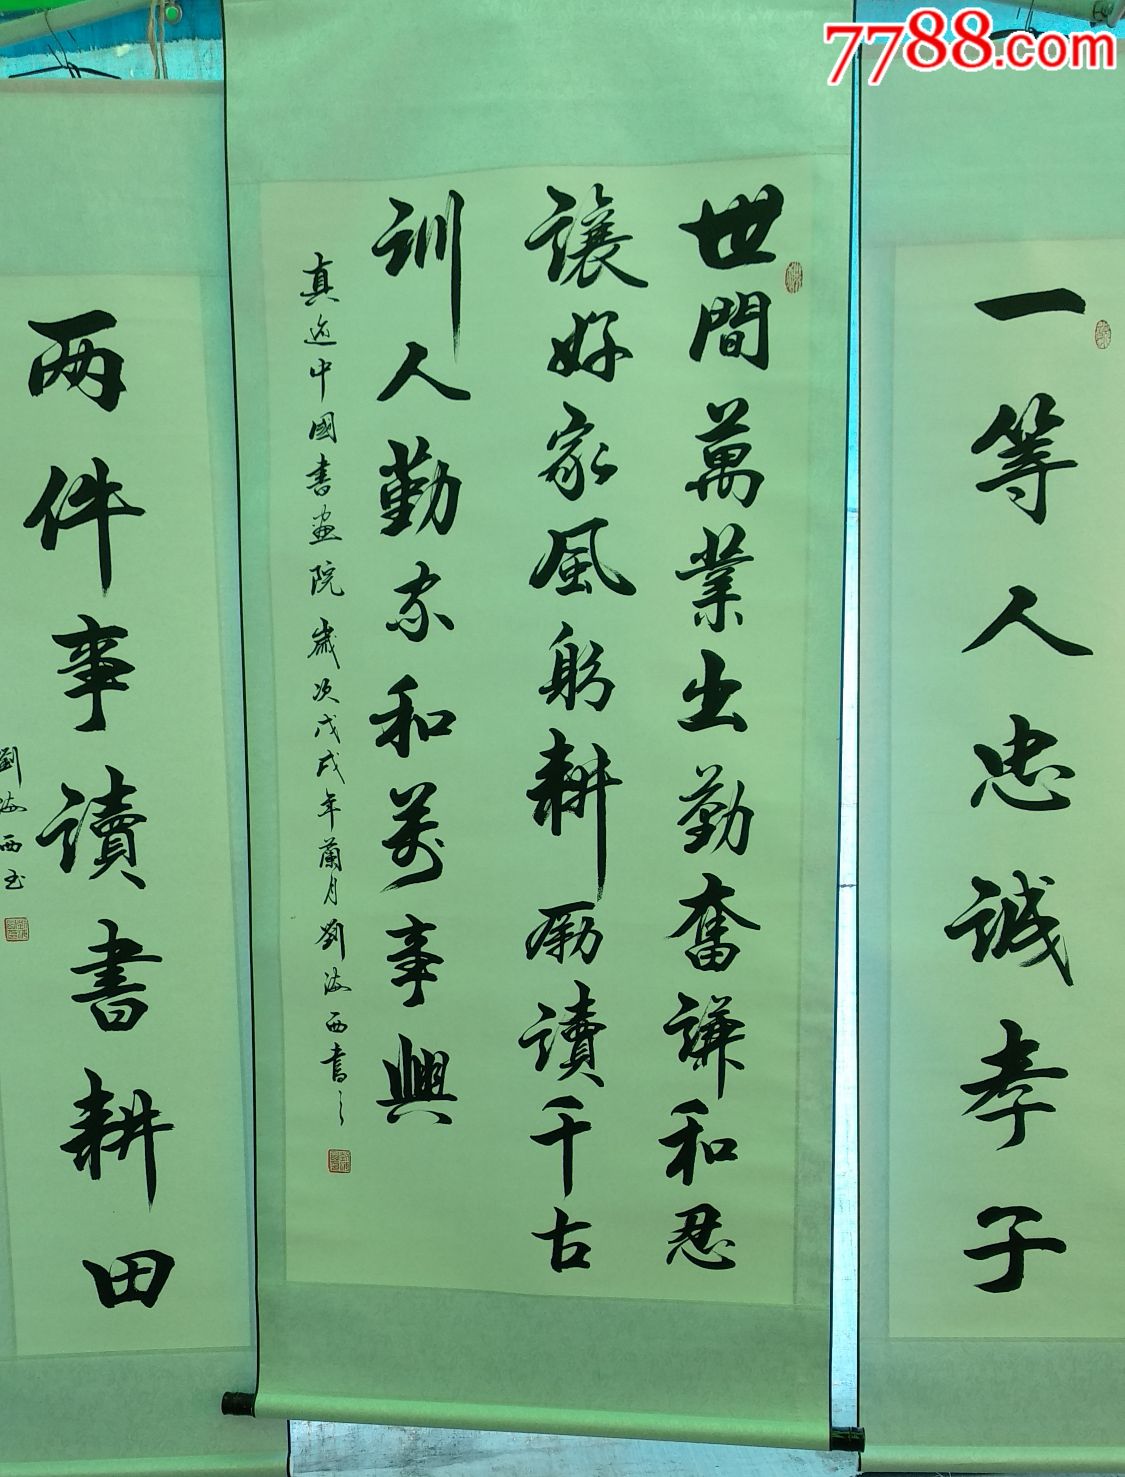 7788.com
一等人忠誠孝子
世間萬業出勤奮謙和忍
讓好家風躬耕励讀千古
訓人勤家和萬事興
真逸中國書畫院歲次戊戌年蘭月劉海西書之
两件事讀書耕田
劉海西書